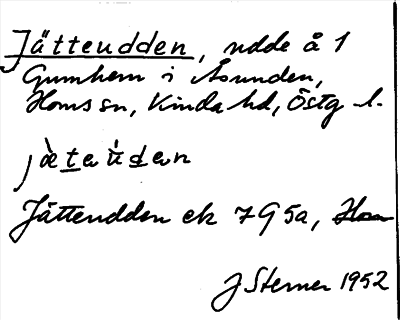 Jättendden, udde å 1
Gumhem i Åsunden,
Horns sn, Kinda hd, Östg l.
jätendan
Jättendden ek 7G5a, Horn
J Sterner 1952